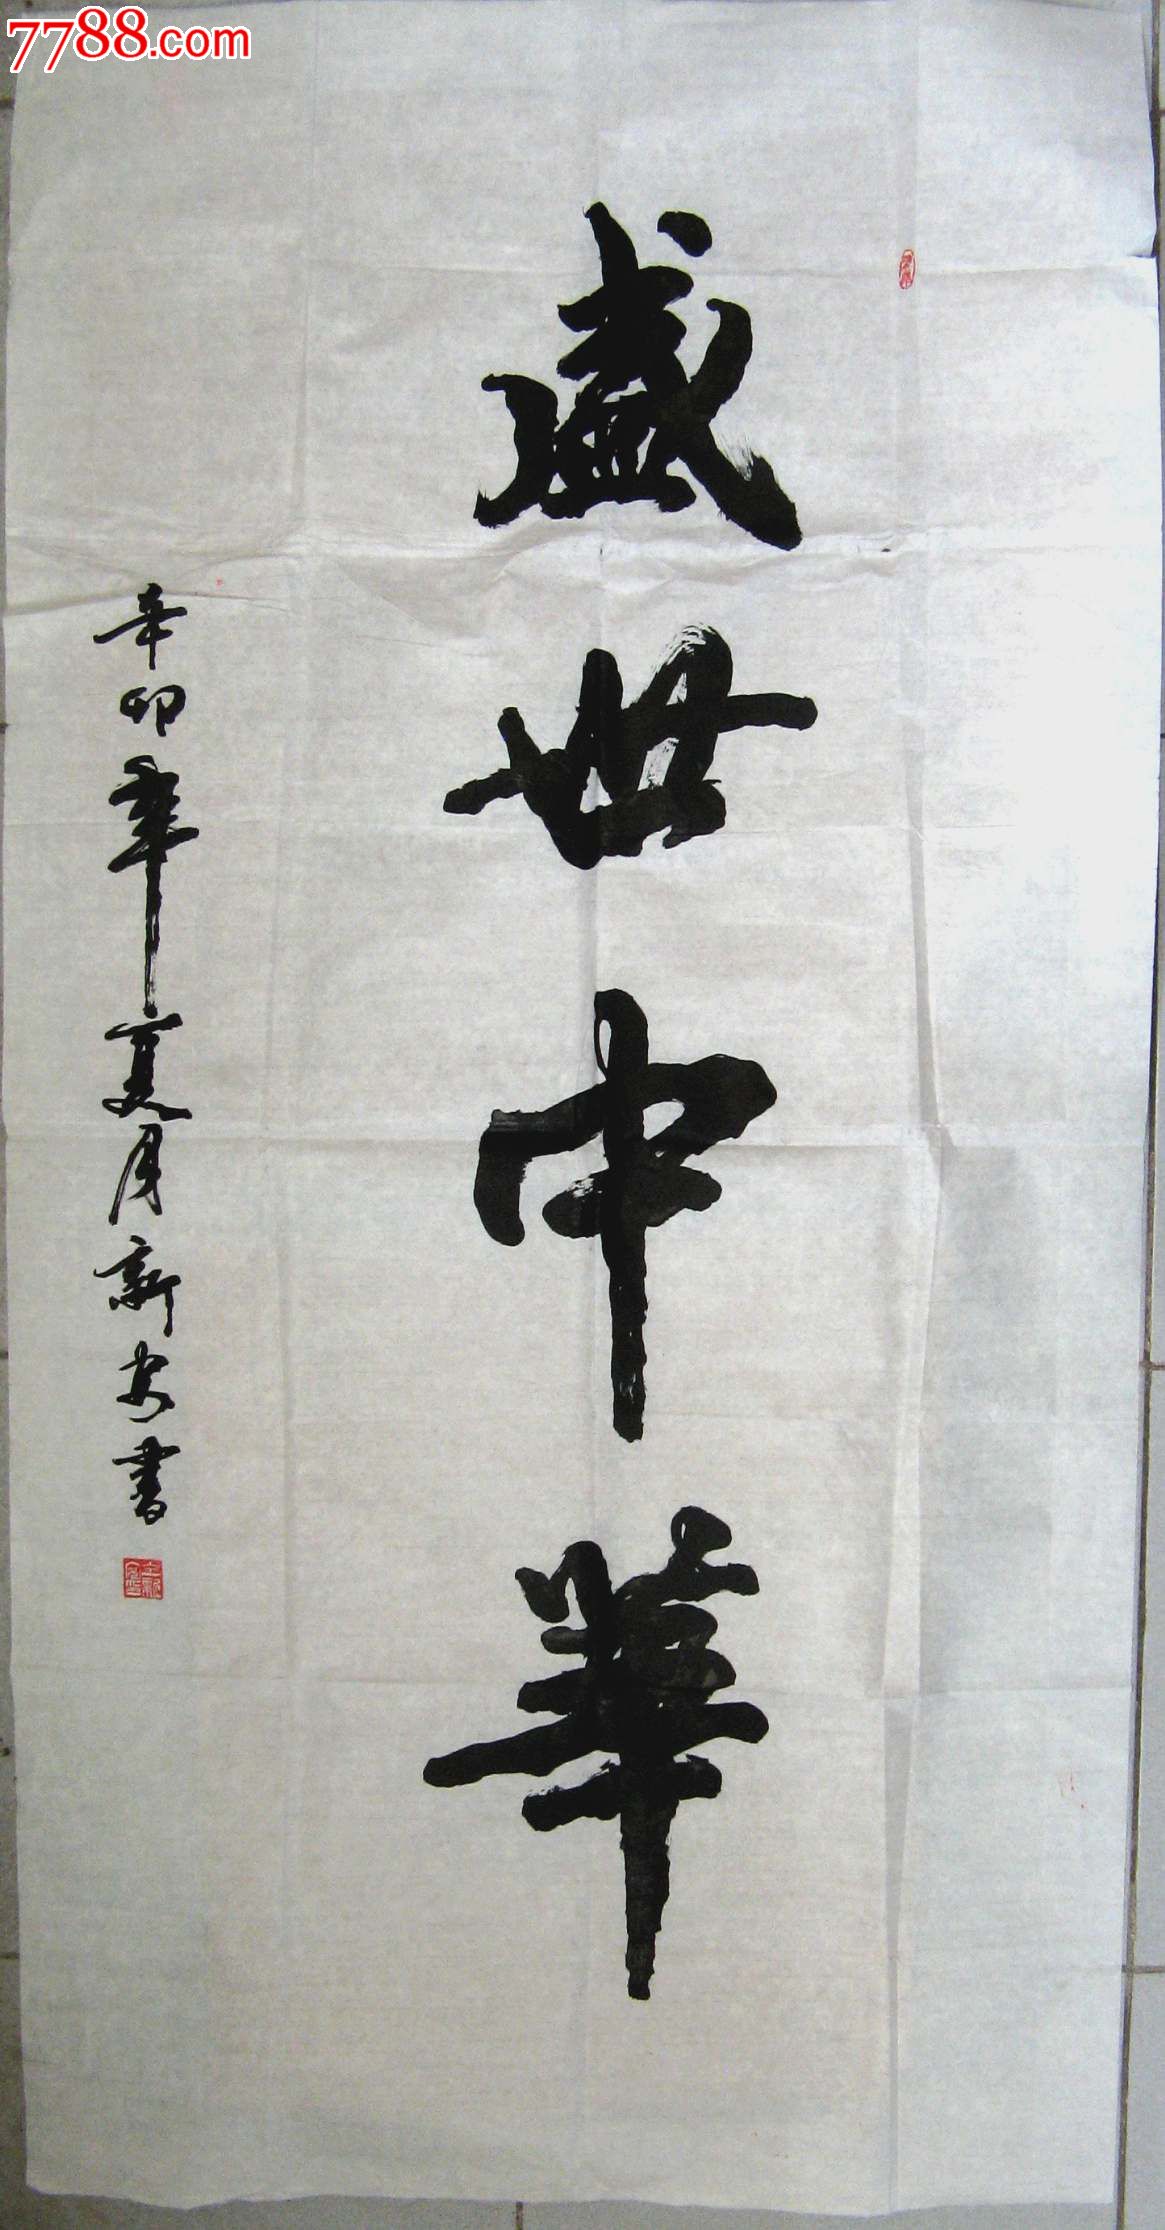 7788.com
盛世中華
辛卯年夏月新安書